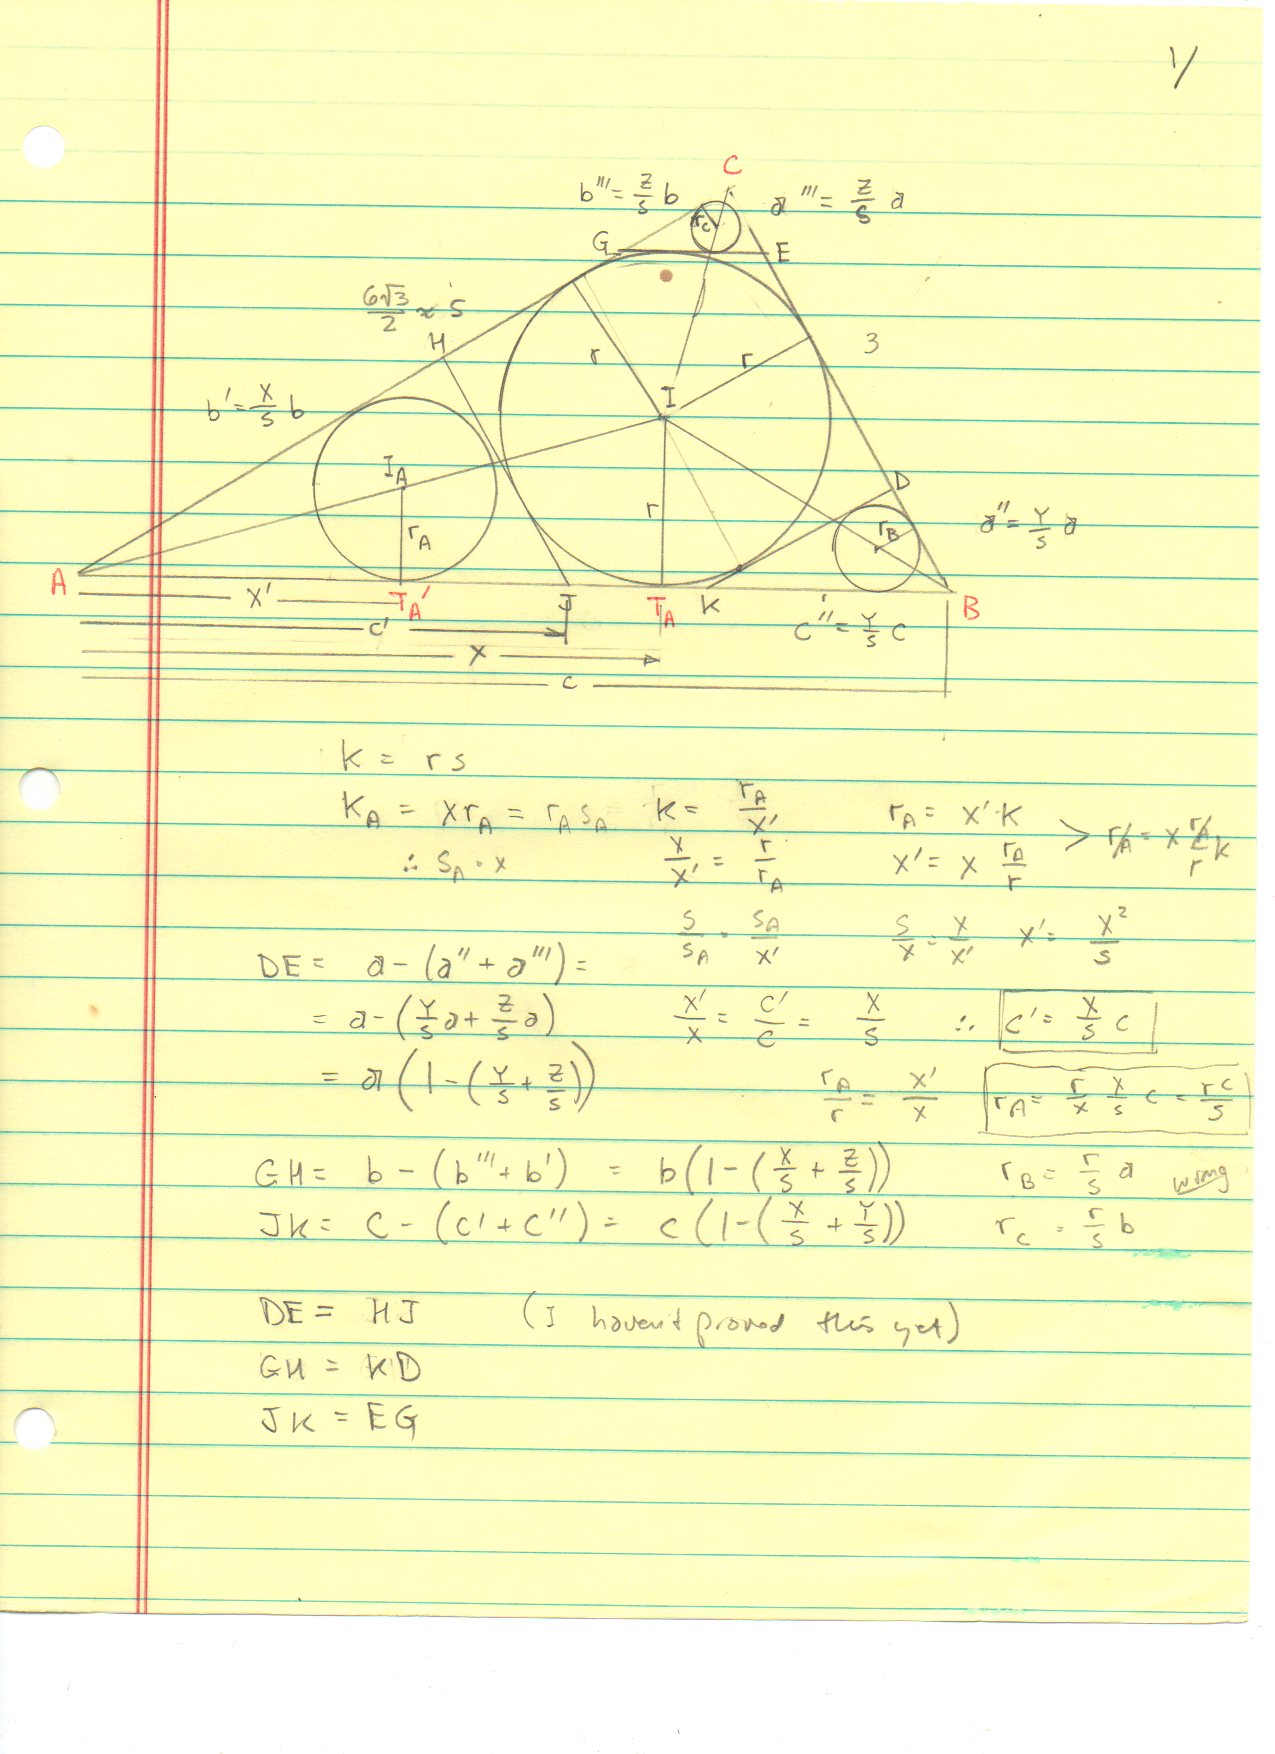 1/
C
b''' = z/s b
a''' = z/s a
r_C
G
E
6√3/2 ≈ 5
H
r
r
3
I
b' = x/s b
I_A
r_A
r
D
r_B
a'' = y/s a
A
x'
T_A'
J
T_A
K
B
c'
c'' = y/s c
x
c
K = rs
K_A = x r_A = r_A s_A
k = r_A/x'
r_A = x'·k
> r_A = x r_A/r k
∴ s_A = x
x/x' = r/r_A
x' = x r_A/r
s/s_A = s_A/x'
s/x = x/x'
x' = x²/s
DE = a - (a'' + a''') =
= a - (y/s a + z/s a)
x'/x = c'/c = x/s
∴ c' = x/s c
= a (1 - (y/s + z/s))
r_A/r = x'/x
r_A = r/x x/s c = rc/s
GH = b - (b''' + b') = b(1 - (x/s + z/s))
r_B = r/s a
wrong
JK = c - (c' + c'') = c (1 - (x/s + y/s))
r_C = r/s b
DE = HJ (I haven't proved this yet)
GH = KD
JK = EG